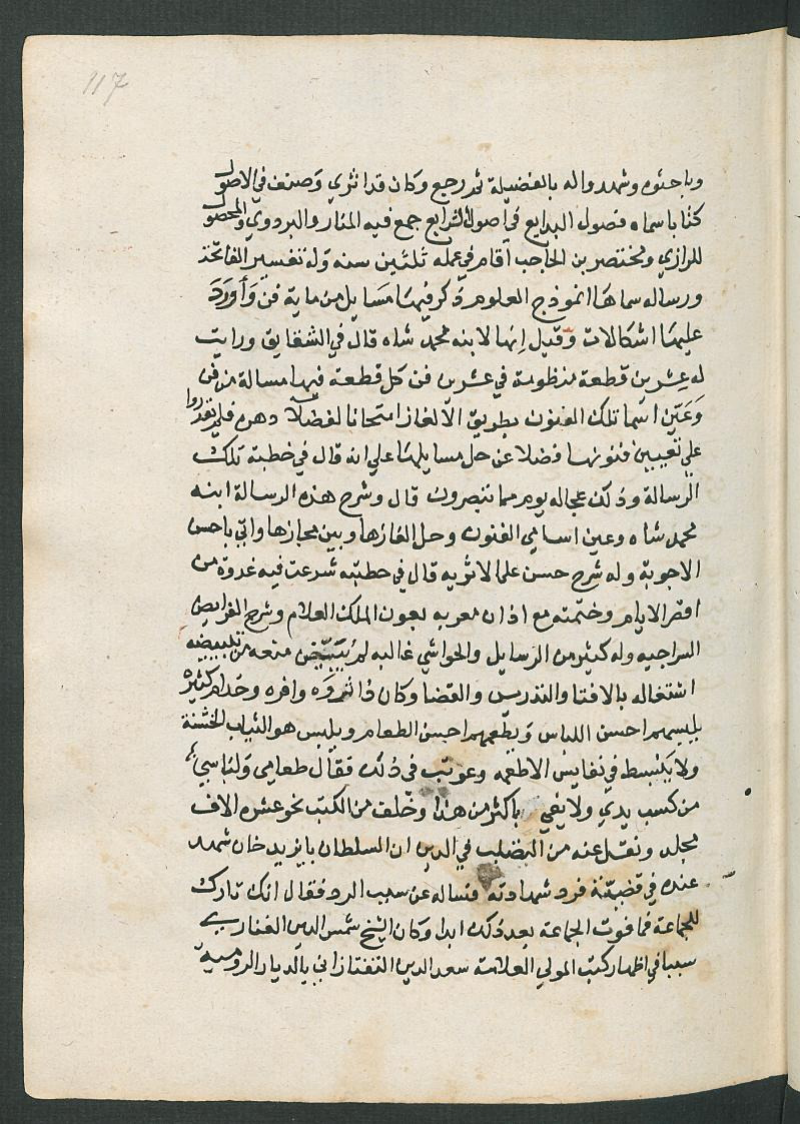 117
وباحثوه وشهدوا له بالفضيلة ثم رجع وكان قد اثري وصنف في الاصول
كتابا سماه فصول البدايع في اصول الشرايع جمع فيه المنار والبردوي والمحصول
للرازي ومختصر بن الحاجب أقام في عمله ثلثين سنه وله تفسير الفاتحة
ورساله سماها انموذج العلوم ذكر فيها مسايل من ماية فن وأورد
عليها اشكالات وقيل إنها لابنه محمد شاه قال في الشقايق ورايت
له عشرين قطعة منظومة في عشرين فن كل قطعة فيها مسالة من فن
وعين اسما تلك الفنون بطريق الالغاز امتحانا لفضلآ دهره فلم يقدروا
علي تعيين فنونها فضلا عن حل مسايلها علي انه قال في خطبة تلك
الرسالة وذلك عجاله يوم مما تبصرون قال وشرح هذه الرسالة ابنه
محمد شاه وعين اسامي الفنون وحل الغازها وبين مجازها واتي باحسن
الاجوبة وله شرح حسن علي الاثريه قال في خطبته شرعت فيه غدوة من
اقصر الايام وختمته مع اذان مغربه بعون الملك العلام وشرح الفرايض
السراجيه وله كثير من الرسايل والحواشي غالبه لم يتبيض منعه من تبييضه
اشتغاله بالافتا والتدريس والقضا وكان ذا ثروه وافره وخدام كثيره
يلبسهم احسن اللباس ويطعمهم احسن الطعام ويلبس هو الثياب الخشنة
ولا ينبسط في نفايس الاطعمه وعوتب في ذلك فقال طعامي ولباسي
من كسب يدي ولا يفي باكثر من هذا وخلف من الكتب نحو عشره الاف
مجلد ونقل عنه من التصلب في الدين ان السلطان بايزيد خان شهد
عنده في قضية فرد شهادته فساله عن سبب الرد فقال انك تارك
للجماعة فما فوت الجماعة بعد ذلك ابدا وكان الشيخ شمس الدين الفناري
سببا في اظهار كتب المولي العلامة سعد الدين التفتازاني بالديار الرومية